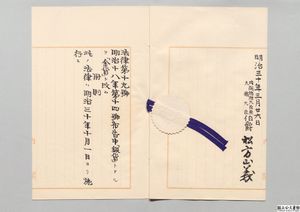 明治三十年三月廿六日
大藏大臣伯爵
松方正義
法律第十九號
明治十八年第十四號布告中銀貨トアル
ヲ金貨ト改ム
附則
此ノ法律ハ明治三十年十月一日ヨリ施
行ス
国立公文書館